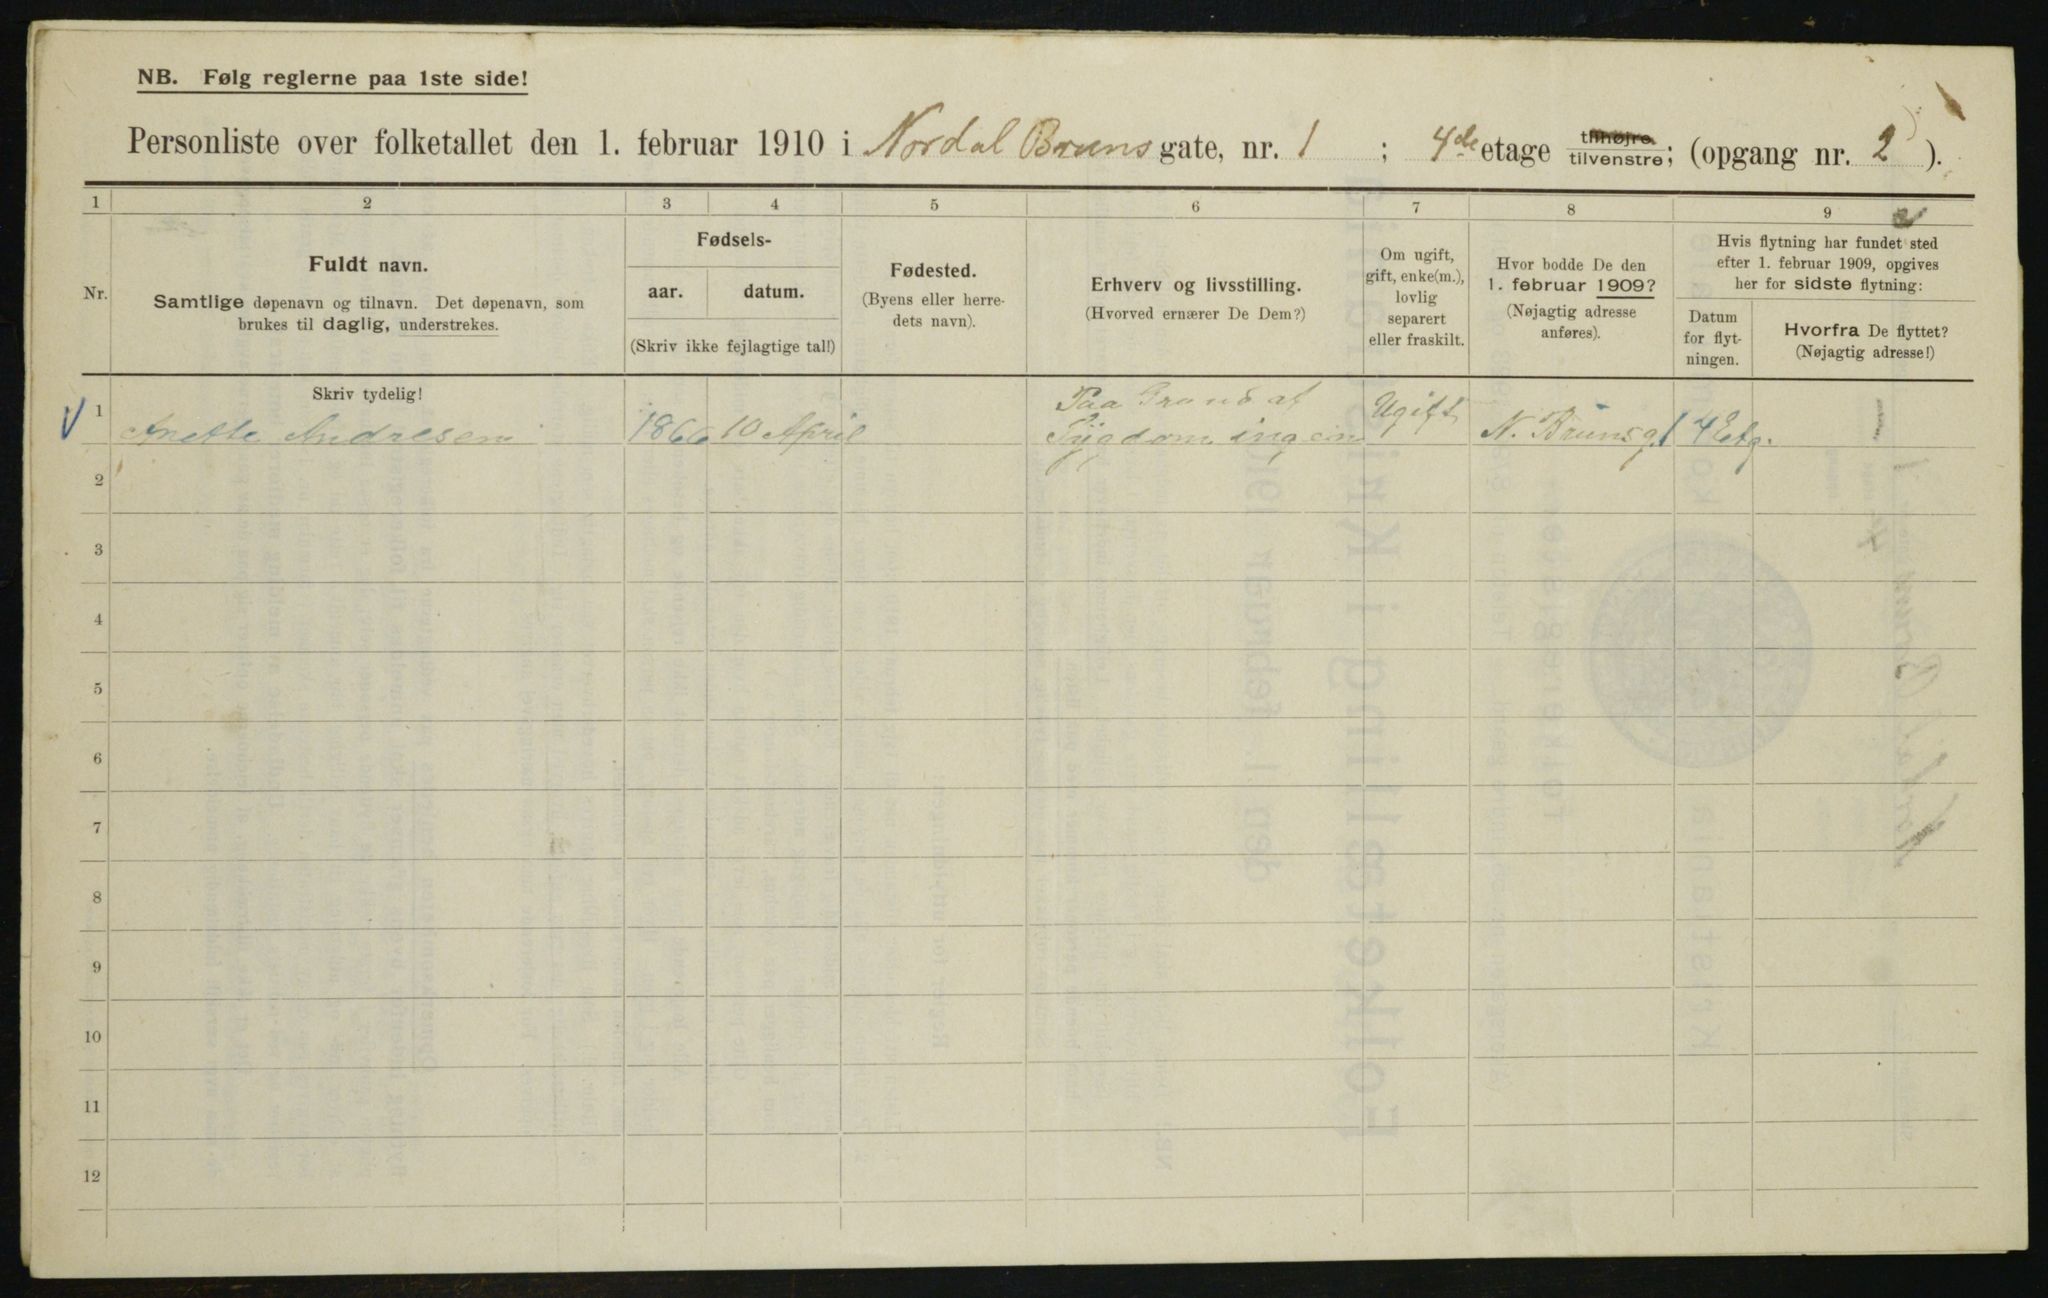 NB. Følg reglerne paa 1ste side!
Personliste over folketallet den 1. februar 1910 i Nordal Bruns gate, nr. 1 ; 4de etage tilhøjre tilvenstre; (opgang nr. 2).
1 2 3 4 5 6 7 8 9
Nr.
Fuldt navn.
Samtlige døpenavn og tilnavn. Det døpenavn, som
brukes til daglig, understrekes.
Fødsels-
aar. datum.
(Skriv ikke fejlagtige tal!)
Fødested.
(Byens eller herre-
dets navn).
Erhverv og livsstilling.
(Hvorved ernærer De Dem?)
Om ugift,
gift, enke(m.),
lovlig
separert
eller fraskilt.
Hvor bodde De den
1. februar 1909?
(Nøjagtig adresse
anføres).
Hvis flytning har fundet sted
efter 1. februar 1909, opgives
her for sidste flytning:
Datum
for flyt-
ningen.
Hvorfra De flyttet?
(Nøjagtig adresse!)
Skriv tydelig!
1 Anette Andresen 1866 10 April Paa Grund af
Sygdom ingen Ugift N. Brunsg. 1 4 Etg.
2
3
4
5
6
7
8
9
10
11
12